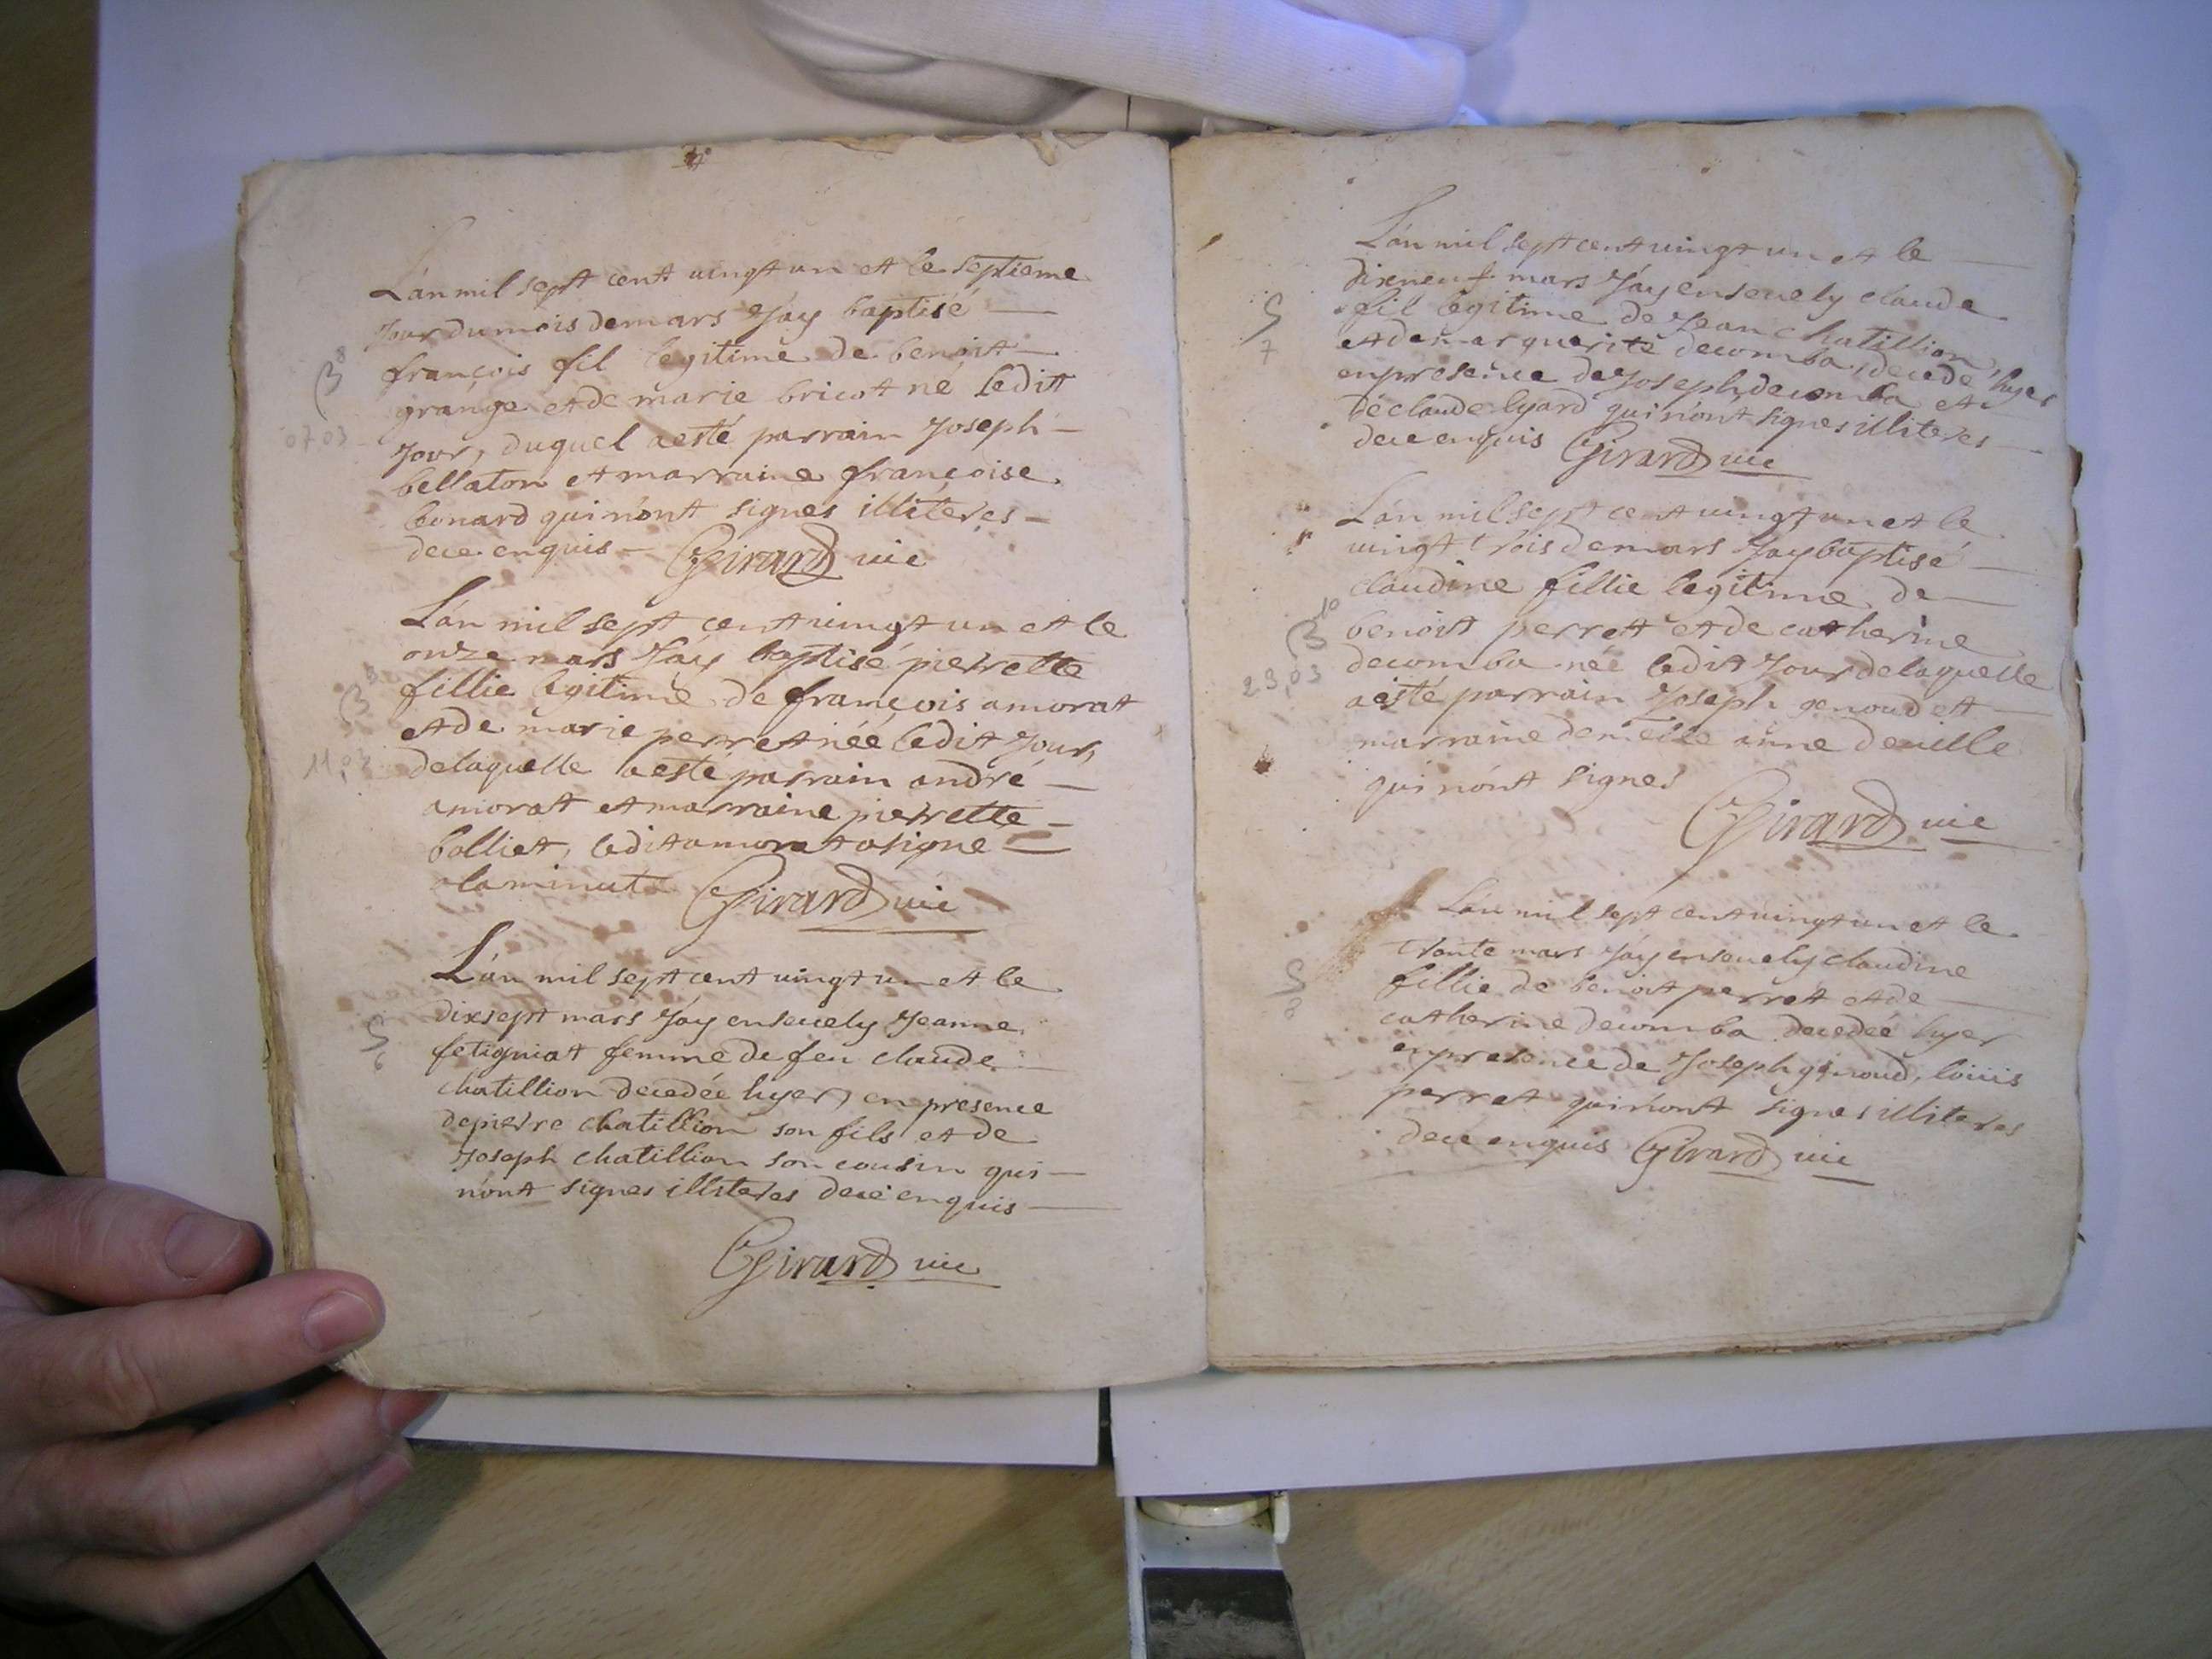 L'an mil sept cent uingt un et le septieme
Jour du mois de mars J'ay baptisé
B 8
françois fil legitime de benoit
grange et de marie bricot né ledit
07 03
Jour, duquel a esté parrain Joseph
bellaton et marraine françoise
bonard qui n'ont signes illiteres
de ce enquis Girard uic
L'an mil sept cent uingt un et le
onze mars J'ay baptisé pierrette
B 9
fillie legitime de françois amorat
et de marie perret née ledit Jour,
11,03
delaquelle a esté parrain andré
amorat et marraine pierrette
bolliet, ledit amorat a signe
a la minute Girard uic
L'an mil sept cent uingt un et le
dixsept mars J'ay enseuely Jeanne
S 6
fetigniat femme de feu claude
chatillion decedée hyer, en presence
de pierre chatillion son fils et de
Joseph chatillion son cousin qui
n'ont signes illiteres de ce enquis
Girard uic
L'an mil sept cent uingt un et le
dixneuf mars J'ay enseuely claude
S 7
fil legitime de Jean chatillion
et de marguerite decomba, decedé hyer
en presence de Joseph decomba et
de claude lyard qui n'ont signes illiteres
de ce enquis Girard uic
L'an mil sept cent uingt un et le
uingt trois de mars J'ay baptisé
claudine fillie legitime de
B 10
benoist perrett et de catherine
decomba née ledit Jour delaquelle
23,03
a esté parrain Joseph genoud et
marraine demelle anne deuelle
qui n'ont signes
Girard uic
L'an mil sept cent uingt un et le
trente mars J'ay enseuely claudine
S 8
fillie de benoit perrett et de
catherine decomba decedeé hyer
en presence de Joseph genoud, loüis
perret qui n'ont signes illiteres
de ce enquis Girard uic